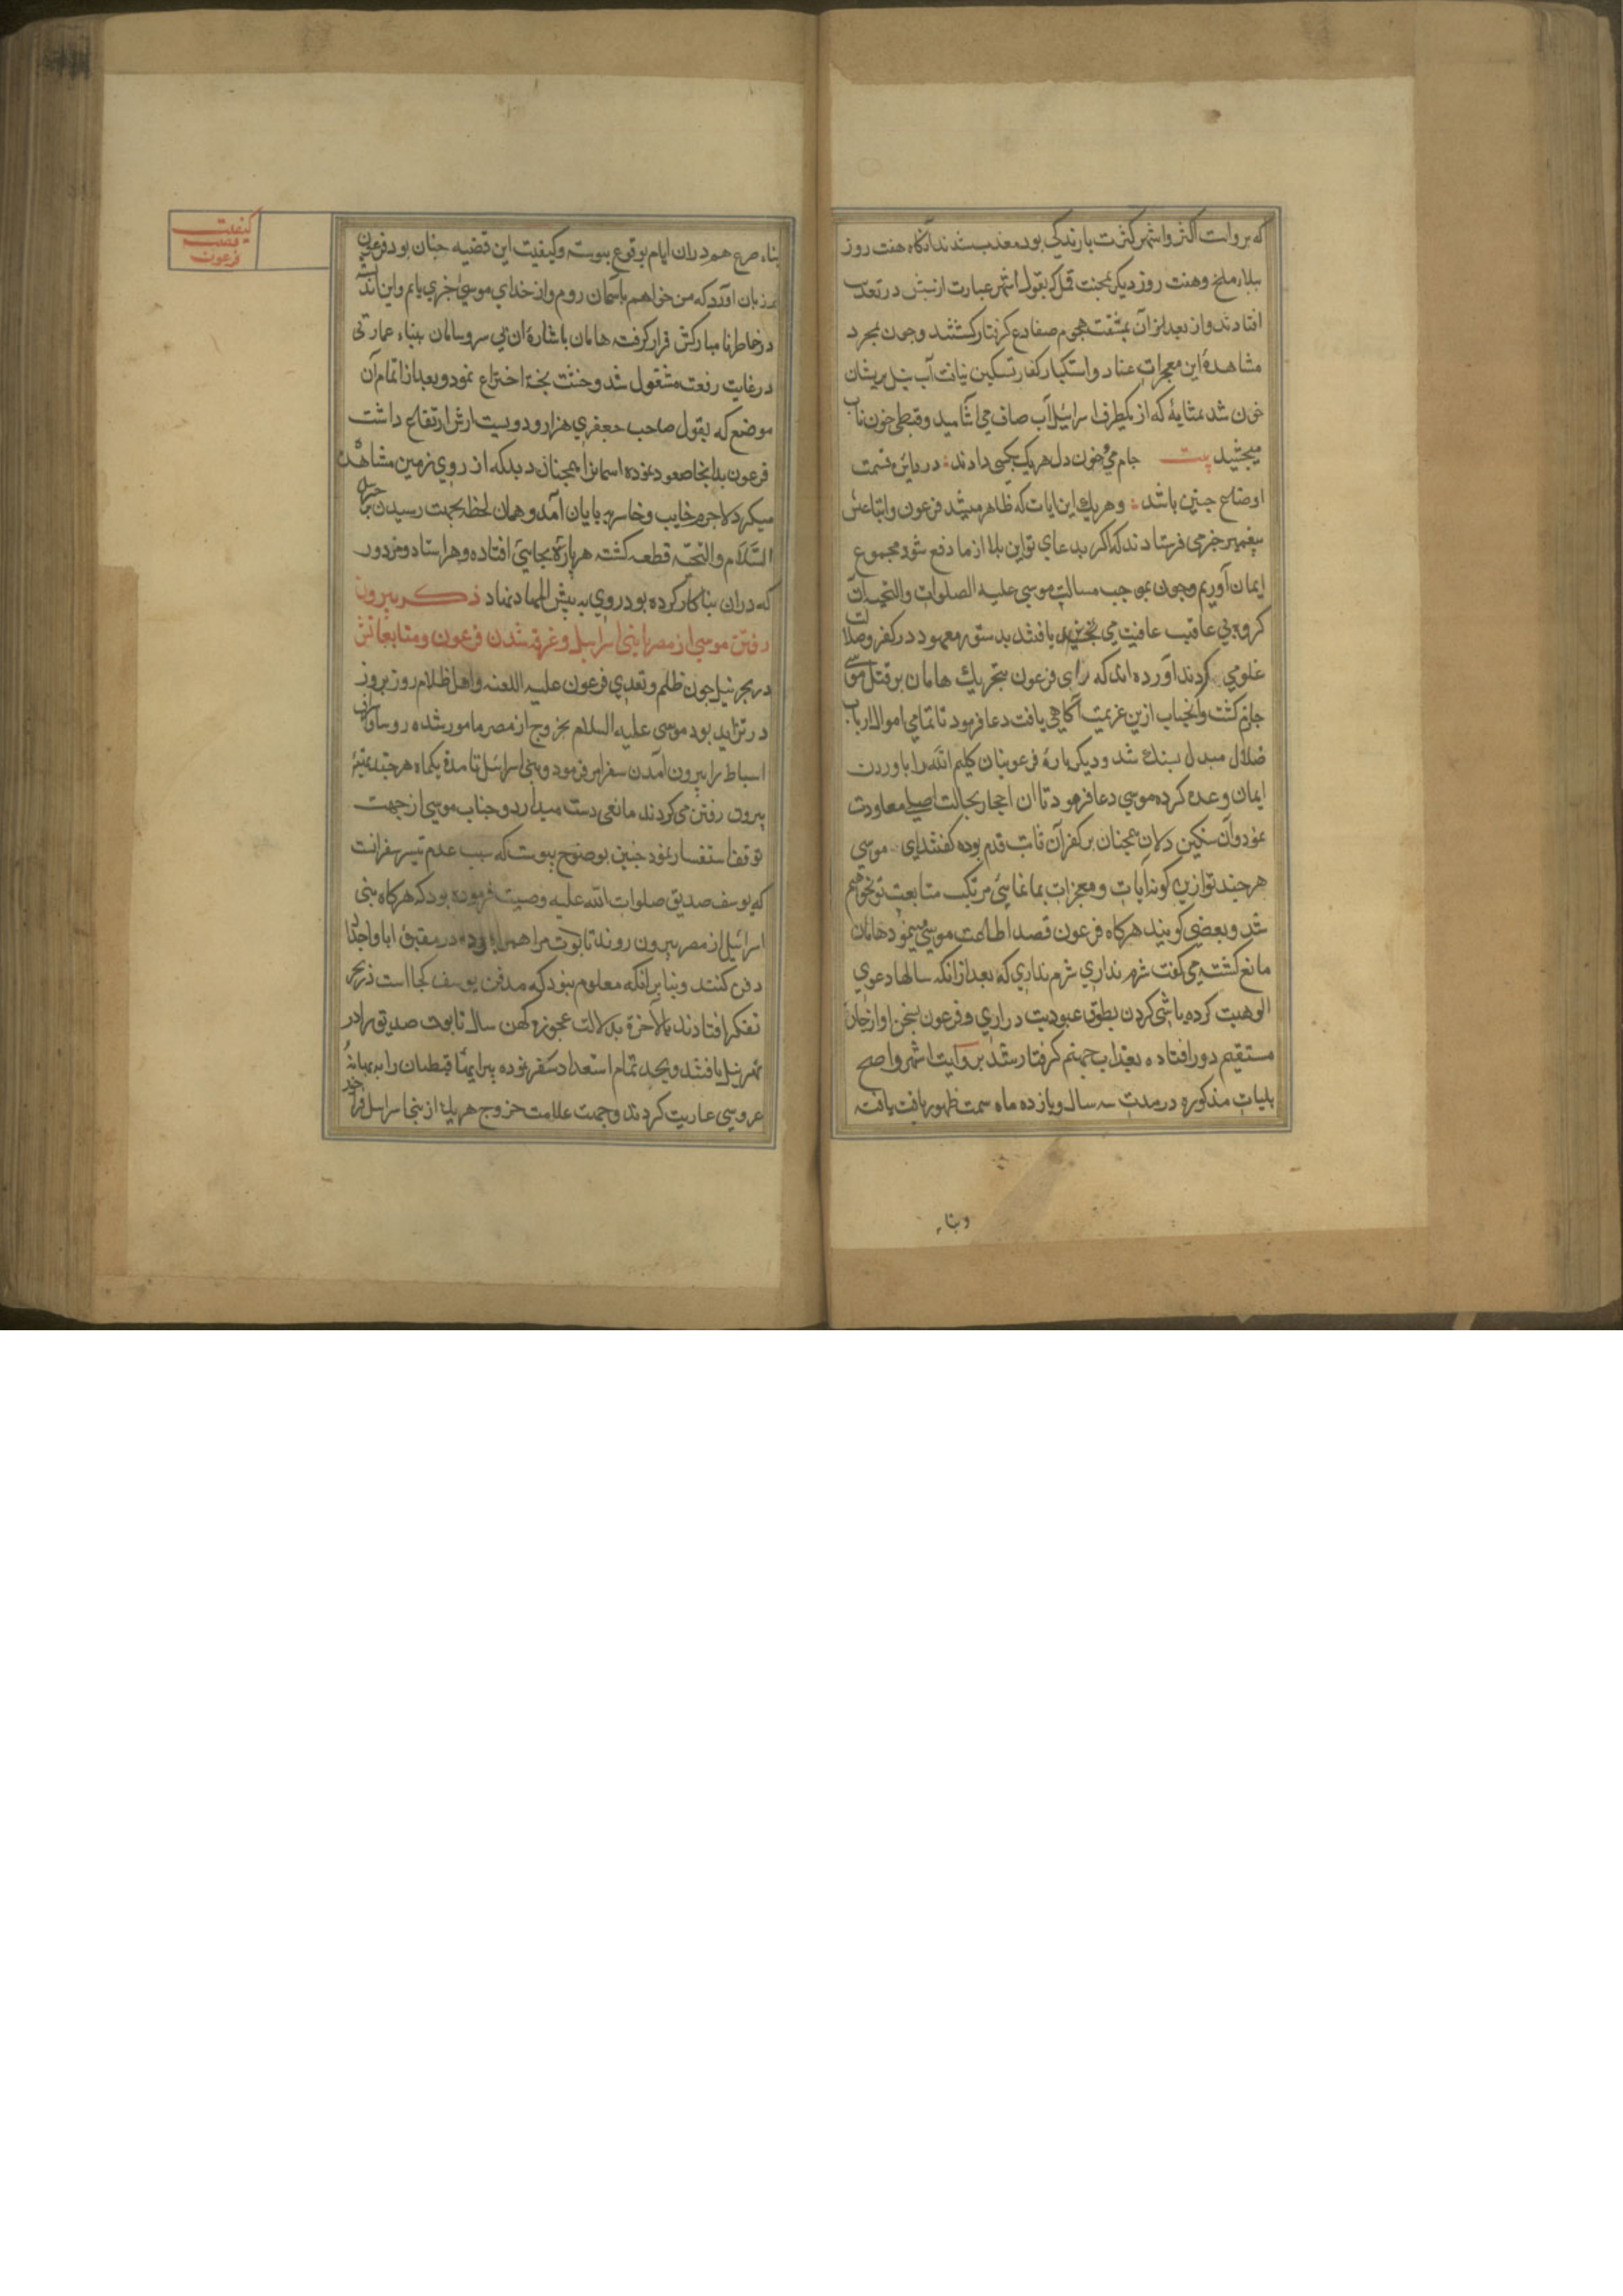 که بروایت اکثر و اشهر کثرت بارندگی بود معذب شدند انکاه هفت روز
ببلاء ملخ و هفت روز دیکر بمحنت قمل که بقول اشهر عبارت از شپش در تعذیب
افتادند و از بعد از آن بمشقت هجوم ضفادع کرفتار کشتند و چون بمجرد
مشاهدهٔ این معجزات عناد و استکبار کفار تسکین نیافت آب نیل بریشان
خون شد بمثابهٔ که از یکطرف اسرائیل آب صاف می آشامید و قبطی خون ناب
میچشید بیت جام می و خون دل هریک بکسی دادند : در دایرهٔ قسمت
اوضاع چنین باشد : و هریک این ایات که ظاهر میشد فرعون و اتباعش
پیغمبر خبر می فرستادند که اکر بدعای تو این بلا از ما دفع شود مجموع
ایمان آوریم و چون بموجب مسالت موسی علیه الصلوات والتحیات آن
کروه بی عاقبت عافیت می یافتند بدستور معهود در کفر و ضلالت
غلو می کردند آورده اند که رای فرعون بتحریک هامان بر قتل موسی
جازم کشت و آنجناب ازین عزیمت آکاهی یافت دعا فرمود تا تمامی اموال ارباب
ضلال مبدل بسنک شد و دیکر بارهٔ فرعونیان کلیم الله را باوردن
ایمان وعده کرده موسی دعا فرمود تا ان احجار بحالت اصلی معاودت
نمود و آن سنکین دلان همچنان بر کفر آن ثابت قدم بوده کفتند ای موسی
هر چند تو ازین کونه آیات و معجزات بما نمایی مرتکب متابعت تو نخواهیم
شد و بعضی کویند هرکاه فرعون قصد اطاعت موسی مینمود هامان
مانع کشته می کفت شرم نداری شرم نداری که بعد از انکه سالها دعوی
الوهیت کرده باشی کردن بطوق عبودیت در اری و فرعون بسخن او از جادهٔ
مستقیم دور افتاده بعذاب جهنم کرفتار شد بروایت اشهر و اصح
بلیات مذکوره در مدت سه سال و یازده ماه سمت ظهور یافت یافت
و بناء
کیفیت
قضیه
فرعون
بناء صرح هم دران ایام بوقوع پیوست و کیفیت این قضیه چنان بود فرعون
بر زبان آورد که من خواهم باسمان روم و از خدای موسی خبری یابم و این اندیشه
در خاطر نا مبارکش قرار کرفته هامان باشارهٔ ان بی سر و سامان ببناء عمارتی
در غایت رفعت مشغول شد و خشت پخته اختراع نمود و بعد از اتمام آن
موضع که بقول صاحب جعفری هزار و دویست ارش ارتفاع داشت
فرعون بدانجا صعود نموده اسمانرا همچنان دید که از روی زمین مشاهده
میکرد لاجرم خایب و خاسر بپایان آمد و همان لحظه بجهت رسیدن جبرئیل
السّلام والتحیّه قطعه کشته هر پارهٔ بجایی افتاده و هر استاد و مزدور
که دران بنا کار کرده بود روی به بیش المهاد نهاد ذکر بیرون
رفتن موسی از مصر با بنی اسرائیل و غرقه شدن فرعون و متابعانش
در بحر نیل چون ظلم و تعدی فرعون علیه اللعنه و اهل ظلام روز بروز
در تزاید بود موسی علیه السلام بخروج از مصر مامور شده روسا و اشراف
اسباط را بیرون آمدن سفر امر فرمود و بنی اسرائیل تا مدة یکماه هر چند تهیهٔ
بیرون رفتن می کردند مانعی دست میداد و جناب موسی از جهت
توقف استفسار نمود چنین بوضوح پیوست که سبب عدم تیسر سفر انست
که یوسف صدیق صلوات الله علیه وصیت فرموده بود که هرکاه بنی
اسرائیل از مصر بیرون روند تابوت مرا همراه برده در مقبرهٔ ابا و اجداد
دفن کنند و بنا بر انکه معلوم نبود که مدفن یوسف کجا است در بحر
تفکر افتادند بالآخرة بدلالت عجوزهٔ کهن سال تابوت صدیق را در
نهر نیل یافتند و بجد تمام استعداد سفر نموده پیرایهٔ قبطیان را به بهانهٔ
عروسی عاریت کردند و جهت علامت خروج هریک از بنی اسرائیل